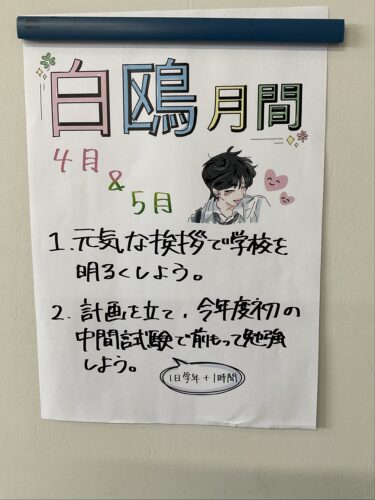 白鴎月間
4月
&
5月
1. 元気な挨拶で学校を
明るくしよう。
2. 計画を立て、今年度初の
中間試験で前もって勉強
しよう。
1日学年+1時間